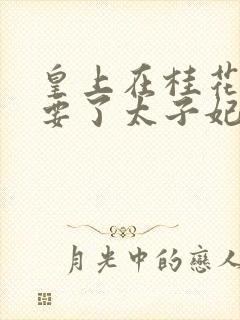 皇上在桂花
要了太子妃
月光中的戀人